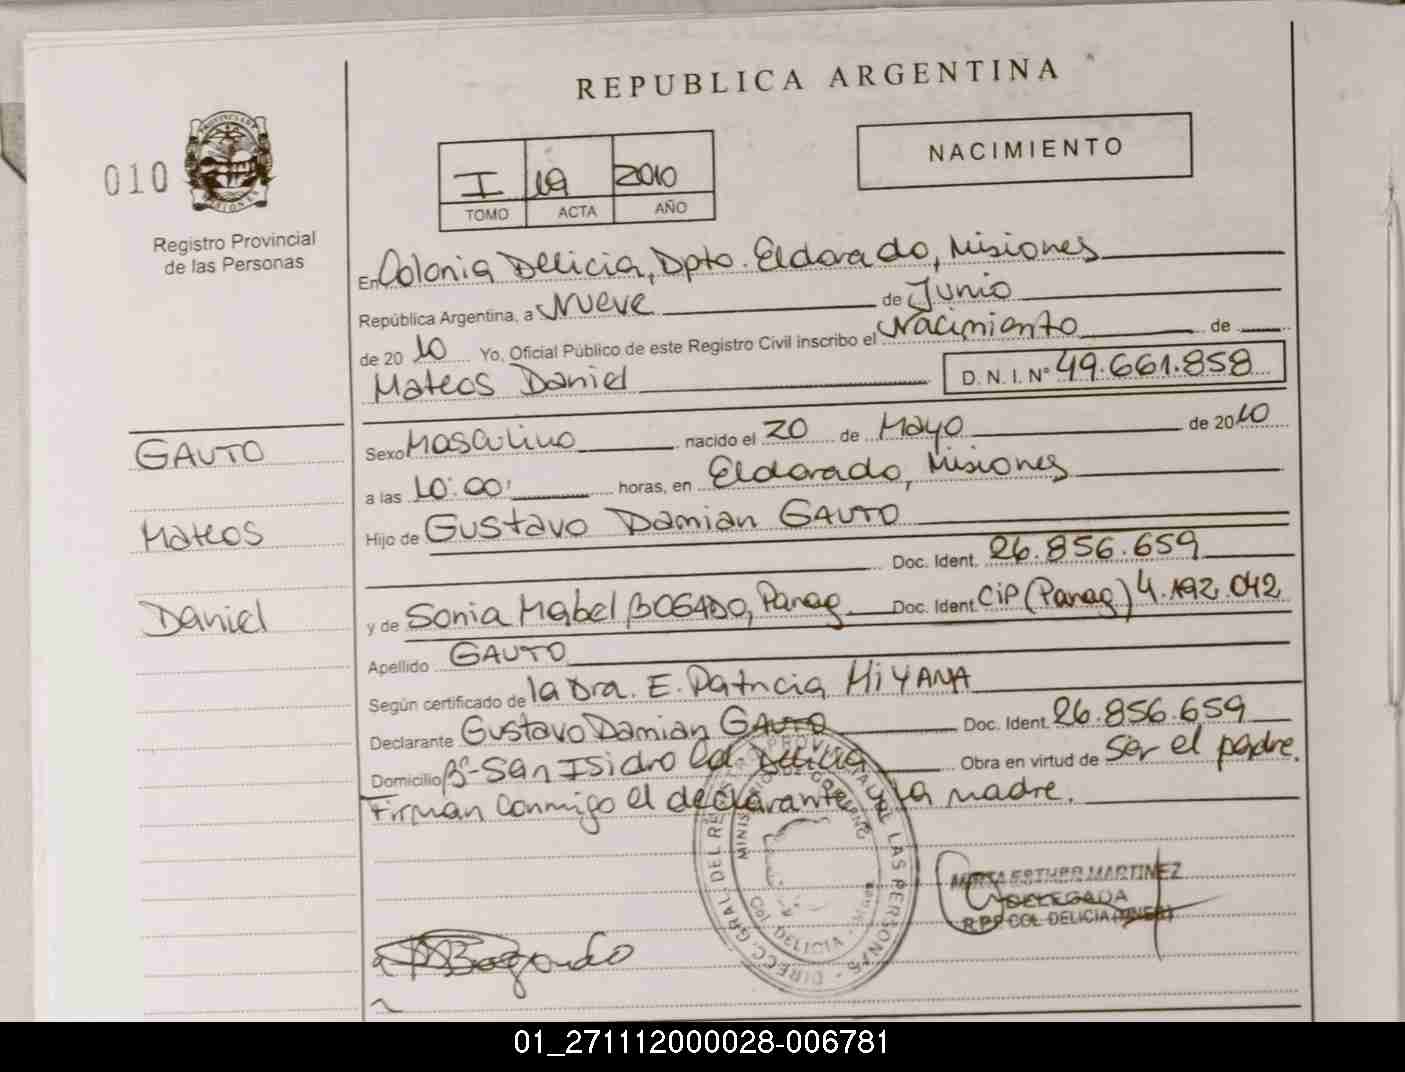 REPUBLICA ARGENTINA
010
PROVINCIA DE MISIONES
Registro Provincial
de las Personas
I 19 2010
TOMO ACTA AÑO
NACIMIENTO
En Colonia Delicia, Dpto. Eldorado, Misiones
República Argentina, a Nueve de Junio
de 2010 Yo, Oficial Público de este Registro Civil inscribo el Nacimiento de
Mateos Daniel D.N.I. Nº 49.661.858
GAUTO
Mateos
Daniel
Sexo Masculino nacido el 20 de Mayo de 2010
a las 10:00' horas, en Eldorado, Misiones
Hijo de Gustavo Damian GAUTO
Doc. Ident. 26.856.659
y de Sonia Mabel BOGADO, Parag Doc. Ident. CiP (Parag) 4.192.042
Apellido GAUTO
Según certificado de la Dra. E. Patricia MIYANA
Declarante Gustavo Damian GAUTO Doc. Ident. 26.856.659
Domicilio Bº San Isidro Col. Delicia Obra en virtud de Ser el padre.
Firman conmigo el declarante y la madre.
DIRECC. GRAL. DEL REGISTRO PROVINCIAL DE LAS PERSONAS
MINISTERIO DE GOBIERNO
COL. DELICIA - MISIONES
MIRTA ESTHER MARTINEZ
DELEGADA
R.P.P. COL. DELICIA
Bogado
01_271112000028-006781